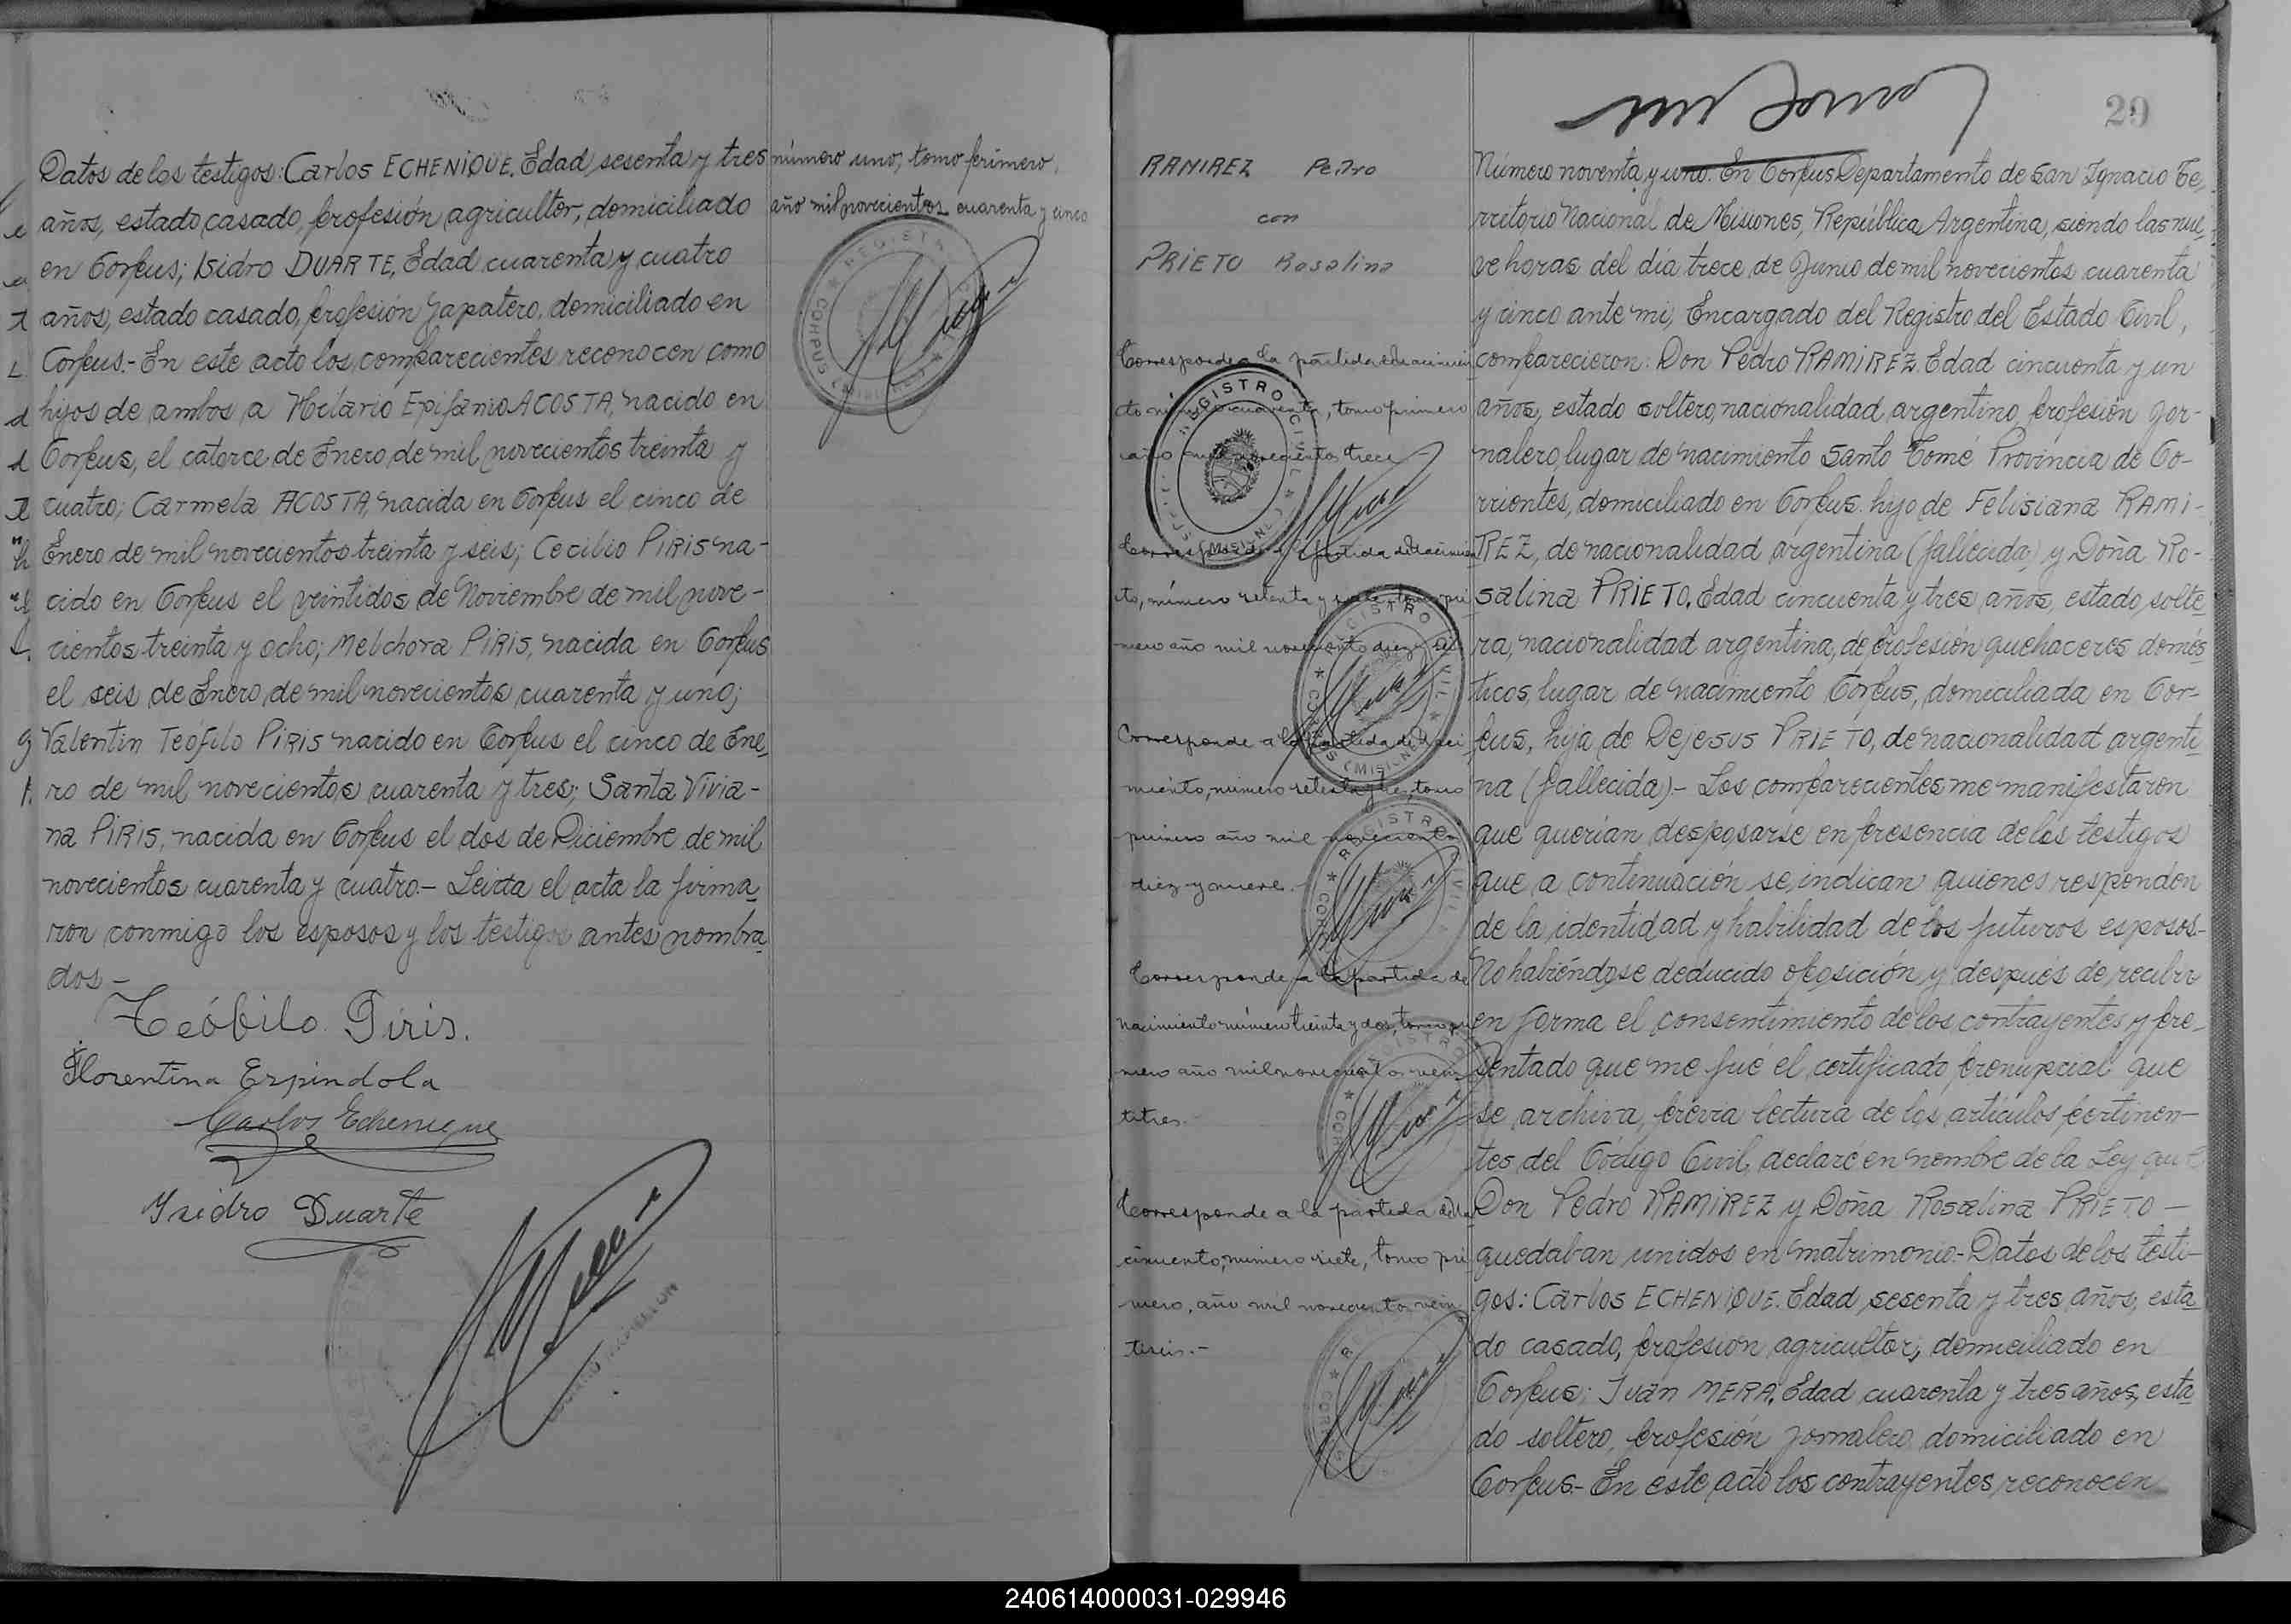 Datos de los testigos: Carlos ECHENIQUE. Edad sesenta y tres
años, estado casado, profesión agricultor, domiciliado
en Corpus; Isidro DUARTE, Edad cuarenta y cuatro
años, estado casado, profesión zapatero, domiciliado en
Corpus.- En este acto los comparecientes reconocen como
hijos de ambos a Hilario Epifanio ACOSTA, nacido en
Corpus, el catorce de Enero de mil novecientos treinta y
cuatro; Carmela ACOSTA, nacida en Corpus el cinco de
Enero de mil novecientos treinta y seis; Cecilio PIRIS na-
cido en Corpus el veintidos de Noviembre de mil nove-
cientos treinta y ocho; Melchora PIRIS, nacida en Corpus
el seis de Enero de mil novecientos cuarenta y uno;
Valentin Teófilo PIRIS nacido en Corpus el cinco de Ene
ro de mil novecientos cuarenta y tres; Santa Vivia-
na PIRIS, nacida en Corpus el dos de Diciembre de mil
novecientos cuarenta y cuatro.- Leida el acta la firma
ron conmigo los esposos y los testigos antes nombra
dos-
Teófilo Piris.
Florentina Espindola
Carlos Echenique
Isidro Duarte
número uno, tomo primero,
año mil novecientos cuarenta y cinco
29
RAMIREZ Pedro
con
PRIETO Rosalina
Corresponde a la partida de nacimien
to número cuarenta, tomo primero
año mil novecientos trece
REGISTRO CIVIL
Corresponde a la partida de nacimien
to, número setenta y siete, tomo pri
mero año mil novecientos diez y
Corresponde a la partida de naci
miento, número setenta y, tomo
primero año mil novecientos
diez y nueve.-
Corresponde a la partida de
nacimiento número treinta y dos, tomo pri
mero año mil novecientos vein
titres.
Corresponde a la partida de na
cimiento, número siete, tomo pri
mero, año mil novecientos vein
tiseis.-
Número noventa y uno. En Corpus Departamento de San Ignacio Te,
rritorio Nacional de Misiones, República Argentina, siendo las nue
ve horas del día trece de Junio de mil novecientos cuarenta
y cinco ante mi, Encargado del Registro del Estado Civil,
comparecieron: Don Pedro RAMIREZ. Edad cincuenta y un
años, estado soltero, nacionalidad argentino, profesión jor-
nalero, lugar de nacimiento Santo Tomé Provincia de Co-
rrientes, domiciliado en Corpus. hijo de Felisiana RAMI-
REZ, de nacionalidad argentina (fallecida) y Doña Ro-
salina PRIETO. Edad cincuenta y tres años, estado solte
ra, nacionalidad argentina, de profesión quehaceres domés
ticos, lugar de nacimiento Corpus, domiciliada en Cor-
pus, hija de Dejesus PRIETO, de nacionalidad argenti
na (fallecida).- Los comparecientes me manifestaron
que querían desposarse en presencia de los testigos
que a continuación se indican quienes responden
de la identidad y habilidad de los futuros esposos.-
No habiéndose deducido oposición y después de recibir
en forma el consentimiento de los contrayentes y pre-
sentado que me fué el certificado prenupcial que
se archiva, previa lectura de los artículos pertinen-
tes del Código Civil, declaré en nombre de la Ley que
Don Pedro RAMIREZ y Doña Rosalina PRIETO -
quedaban unidos en matrimonio.- Datos de los testi-
gos: Carlos ECHENIQUE. Edad sesenta y tres años, esta
do casado, profesión agricultor, domiciliado en
Corpus; Juan MERA. Edad cuarenta y tres años, esta
do soltero, profesión jornalero domiciliado en
Corpus.- En este acto los contrayentes reconocen
240614000031-029946